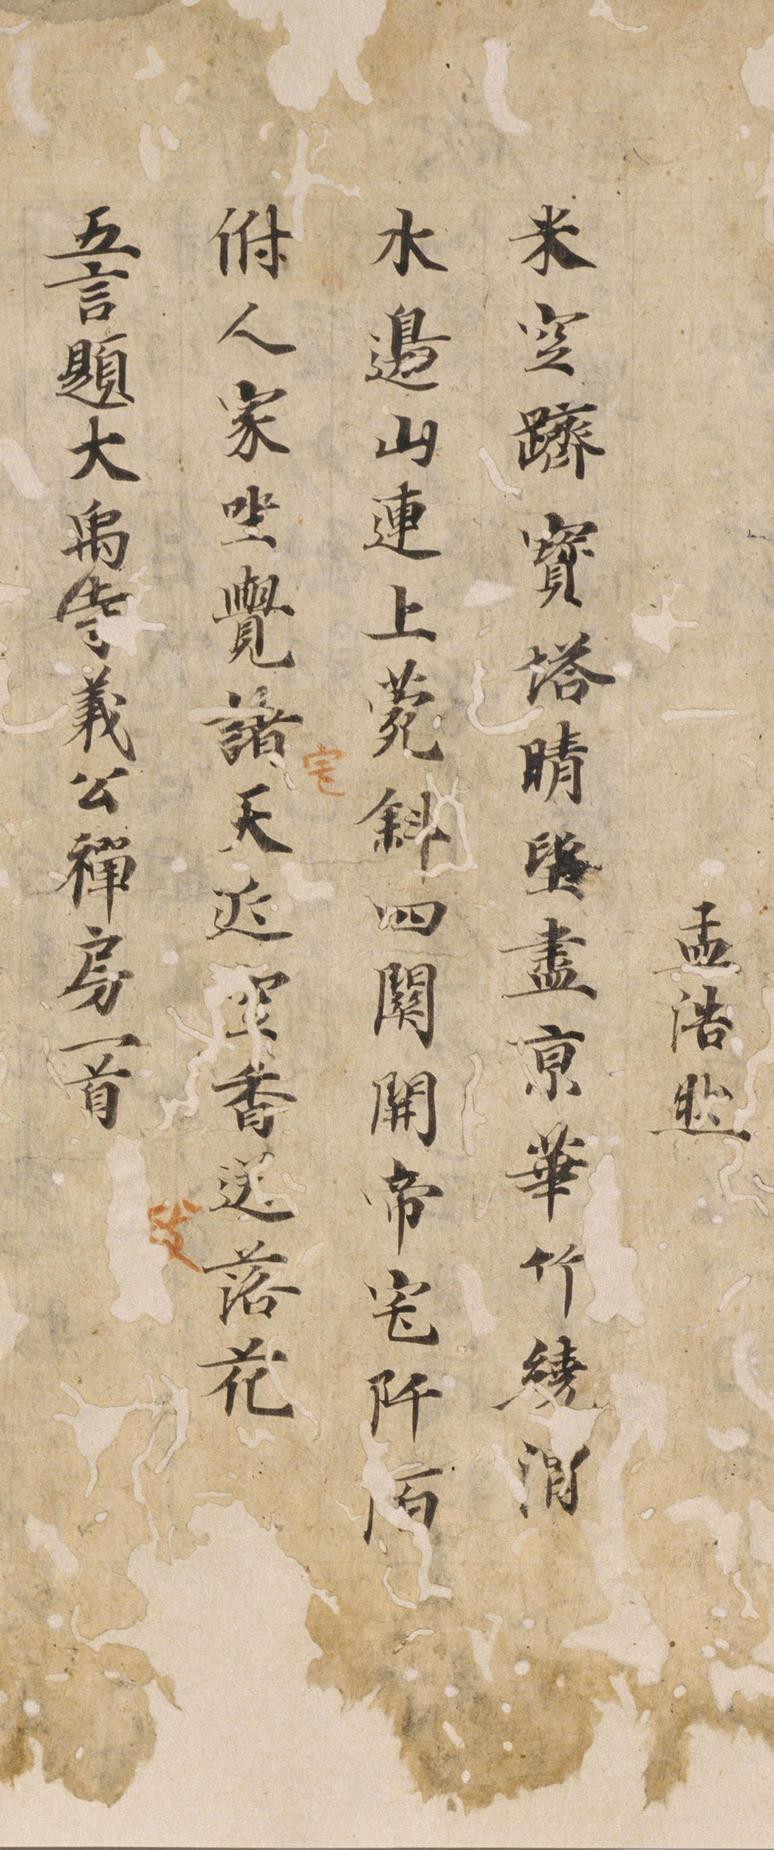 孟浩然
来空躋寶塔晴望盡京華竹繞渭
水邊山連上菀斜四閞開帝宅阡陌
俯人家坐覺諸天近空香送落花
五言題大禹寺義公禪房一首